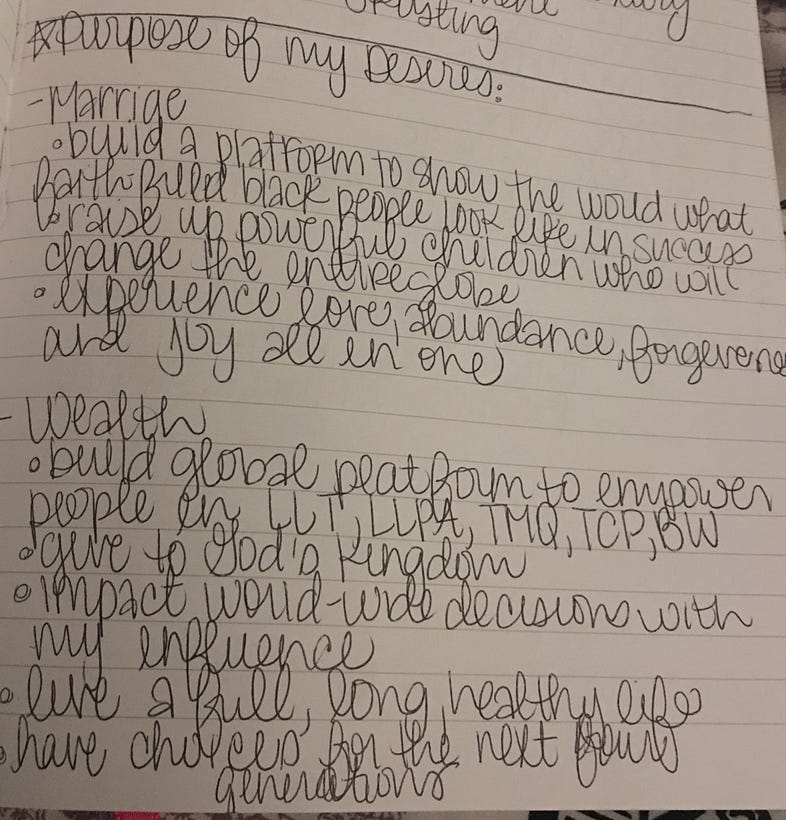 trusting
☆Purpose of my Desires:
- Marrige
• build a platform to show the world what
faith-filled black people look like in success
• raise up powerful children who will
change the entire globe
• experience love, abundance, forgivenes
and joy all in one
- Wealth
• build global platform to empower
people in LLT, LLPA, TMQ, TCP, BW
• give to God's Kingdom
• impact world-wide decisions with
my influence
• live a full, long, healthy life
• have choices for the next four
generations